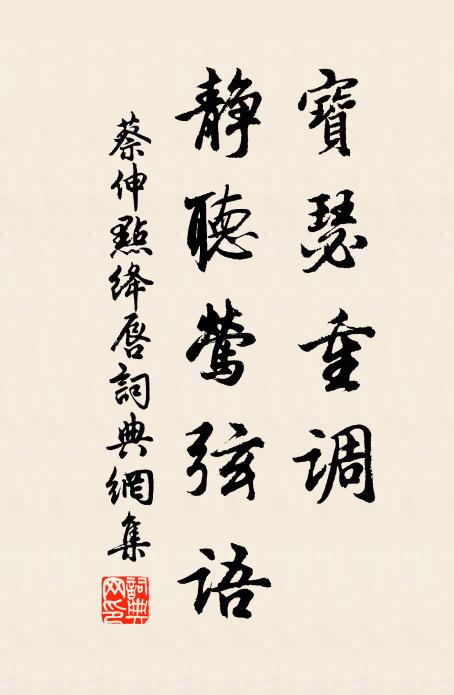 寶瑟重調
静聽鶯弦語
蔡伸點绛唇詞典網集
詞典网印